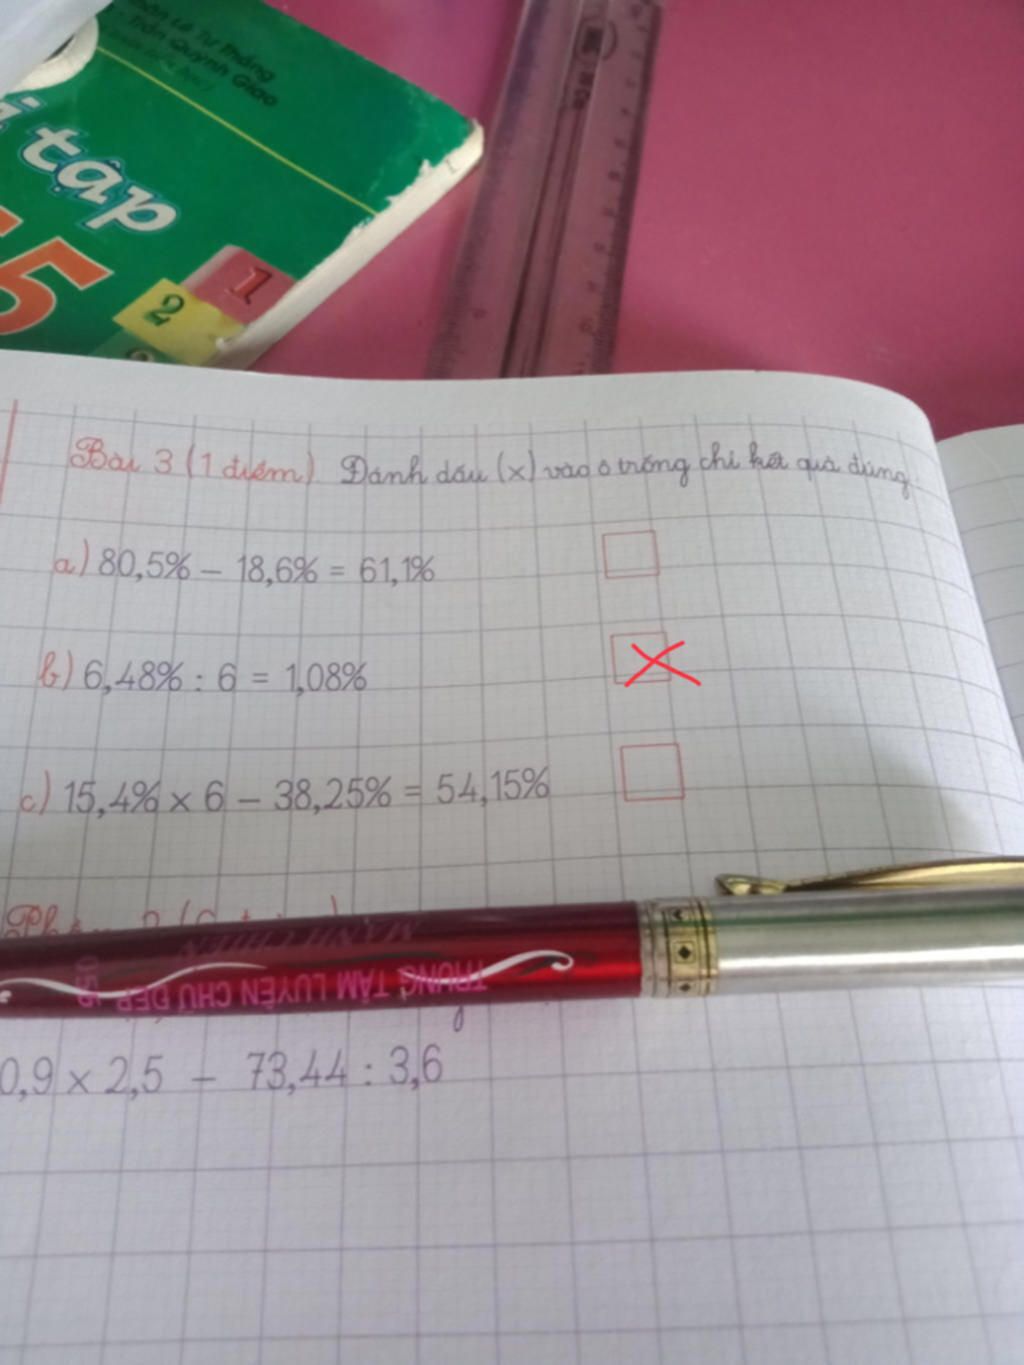 Trần Quỳnh Giao
tập
5
1
2
Bài 3 (1 điểm) Đánh dấu (x) vào ô trống chỉ kết quả đúng.
a) 80,5% – 18,6% = 61,1%
b) 6,48% : 6 = 1,08%
c) 15,4% x 6 – 38,25% = 54,15%
TRUNG TÂM LUYỆN CHỮ ĐẸP
0,9 x 2,5 – 73,44 : 3,6